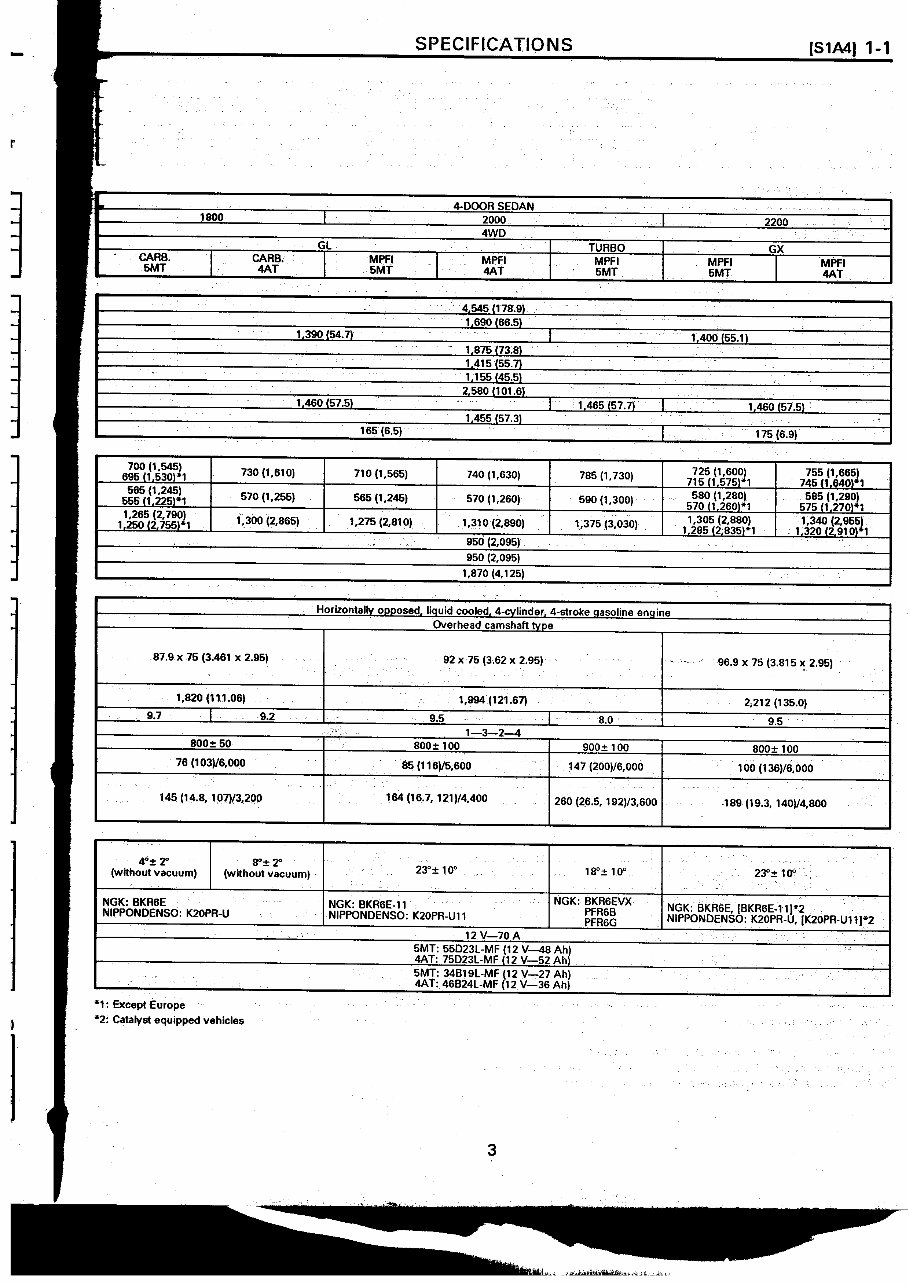 SPECIFICATIONS
[S1A4] 1-1
4-DOOR SEDAN
1800 2000 2200
4WD
GL TURBO GX
CARB. CARB. MPFI MPFI MPFI MPFI MPFI
5MT 4AT 5MT 4AT 5MT 5MT 4AT
4,545 (178.9)
1,690 (66.5)
1,390 (54.7) 1,400 (55.1)
1,875 (73.8)
1,415 (55.7)
1,155 (45.5)
2,580 (101.6)
1,460 (57.5) 1,465 (57.7) 1,460 (57.5)
1,455 (57.3)
165 (6.5) 175 (6.9)
700 (1,545) 730 (1,610) 710 (1,565) 740 (1,630) 785 (1,730) 725 (1,600) 755 (1,665)
695 (1,530)*1 715 (1,575)*1 745 (1,640)*1
565 (1,245) 570 (1,255) 565 (1,245) 570 (1,260) 590 (1,300) 580 (1,280) 585 (1,290)
555 (1,225)*1 570 (1,260)*1 575 (1,270)*1
1,265 (2,790) 1,300 (2,865) 1,275 (2,810) 1,310 (2,890) 1,375 (3,030) 1,305 (2,880) 1,340 (2,955)
1,250 (2,755)*1 1,285 (2,835)*1 1,320 (2,910)*1
950 (2,095)
950 (2,095)
1,870 (4,125)
Horizontally opposed, liquid cooled, 4-cylinder, 4-stroke gasoline engine
Overhead camshaft type
87.9 x 75 (3.461 x 2.95) 92 x 75 (3.62 x 2.95) 96.9 x 75 (3.815 x 2.95)
1,820 (111.06) 1,994 (121.67) 2,212 (135.0)
9.7 9.2 9.5 8.0 9.5
1—3—2—4
800± 50 800± 100 900± 100 800± 100
76 (103)/6,000 85 (116)/5,600 147 (200)/6,000 100 (136)/6,000
145 (14.8, 107)/3,200 164 (16.7, 121)/4,400 260 (26.5, 192)/3,600 189 (19.3, 140)/4,800
4°± 2° 8°± 2° 23°± 10° 18°± 10° 23°± 10°
(without vacuum) (without vacuum)
NGK: BKR6E NGK: BKR6E-11 NGK: BKR6EVX NGK: BKR6E, [BKR6E-11]*2
NIPPONDENSO: K20PR-U NIPPONDENSO: K20PR-U11 PFR6B NIPPONDENSO: K20PR-U, [K20PR-U11]*2
PFR6G
12 V—70 A
5MT: 55D23L-MF (12 V—48 Ah)
4AT: 75D23L-MF (12 V—52 Ah)
5MT: 34B19L-MF (12 V—27 Ah)
4AT: 46B24L-MF (12 V—36 Ah)
*1: Except Europe
*2: Catalyst equipped vehicles
3